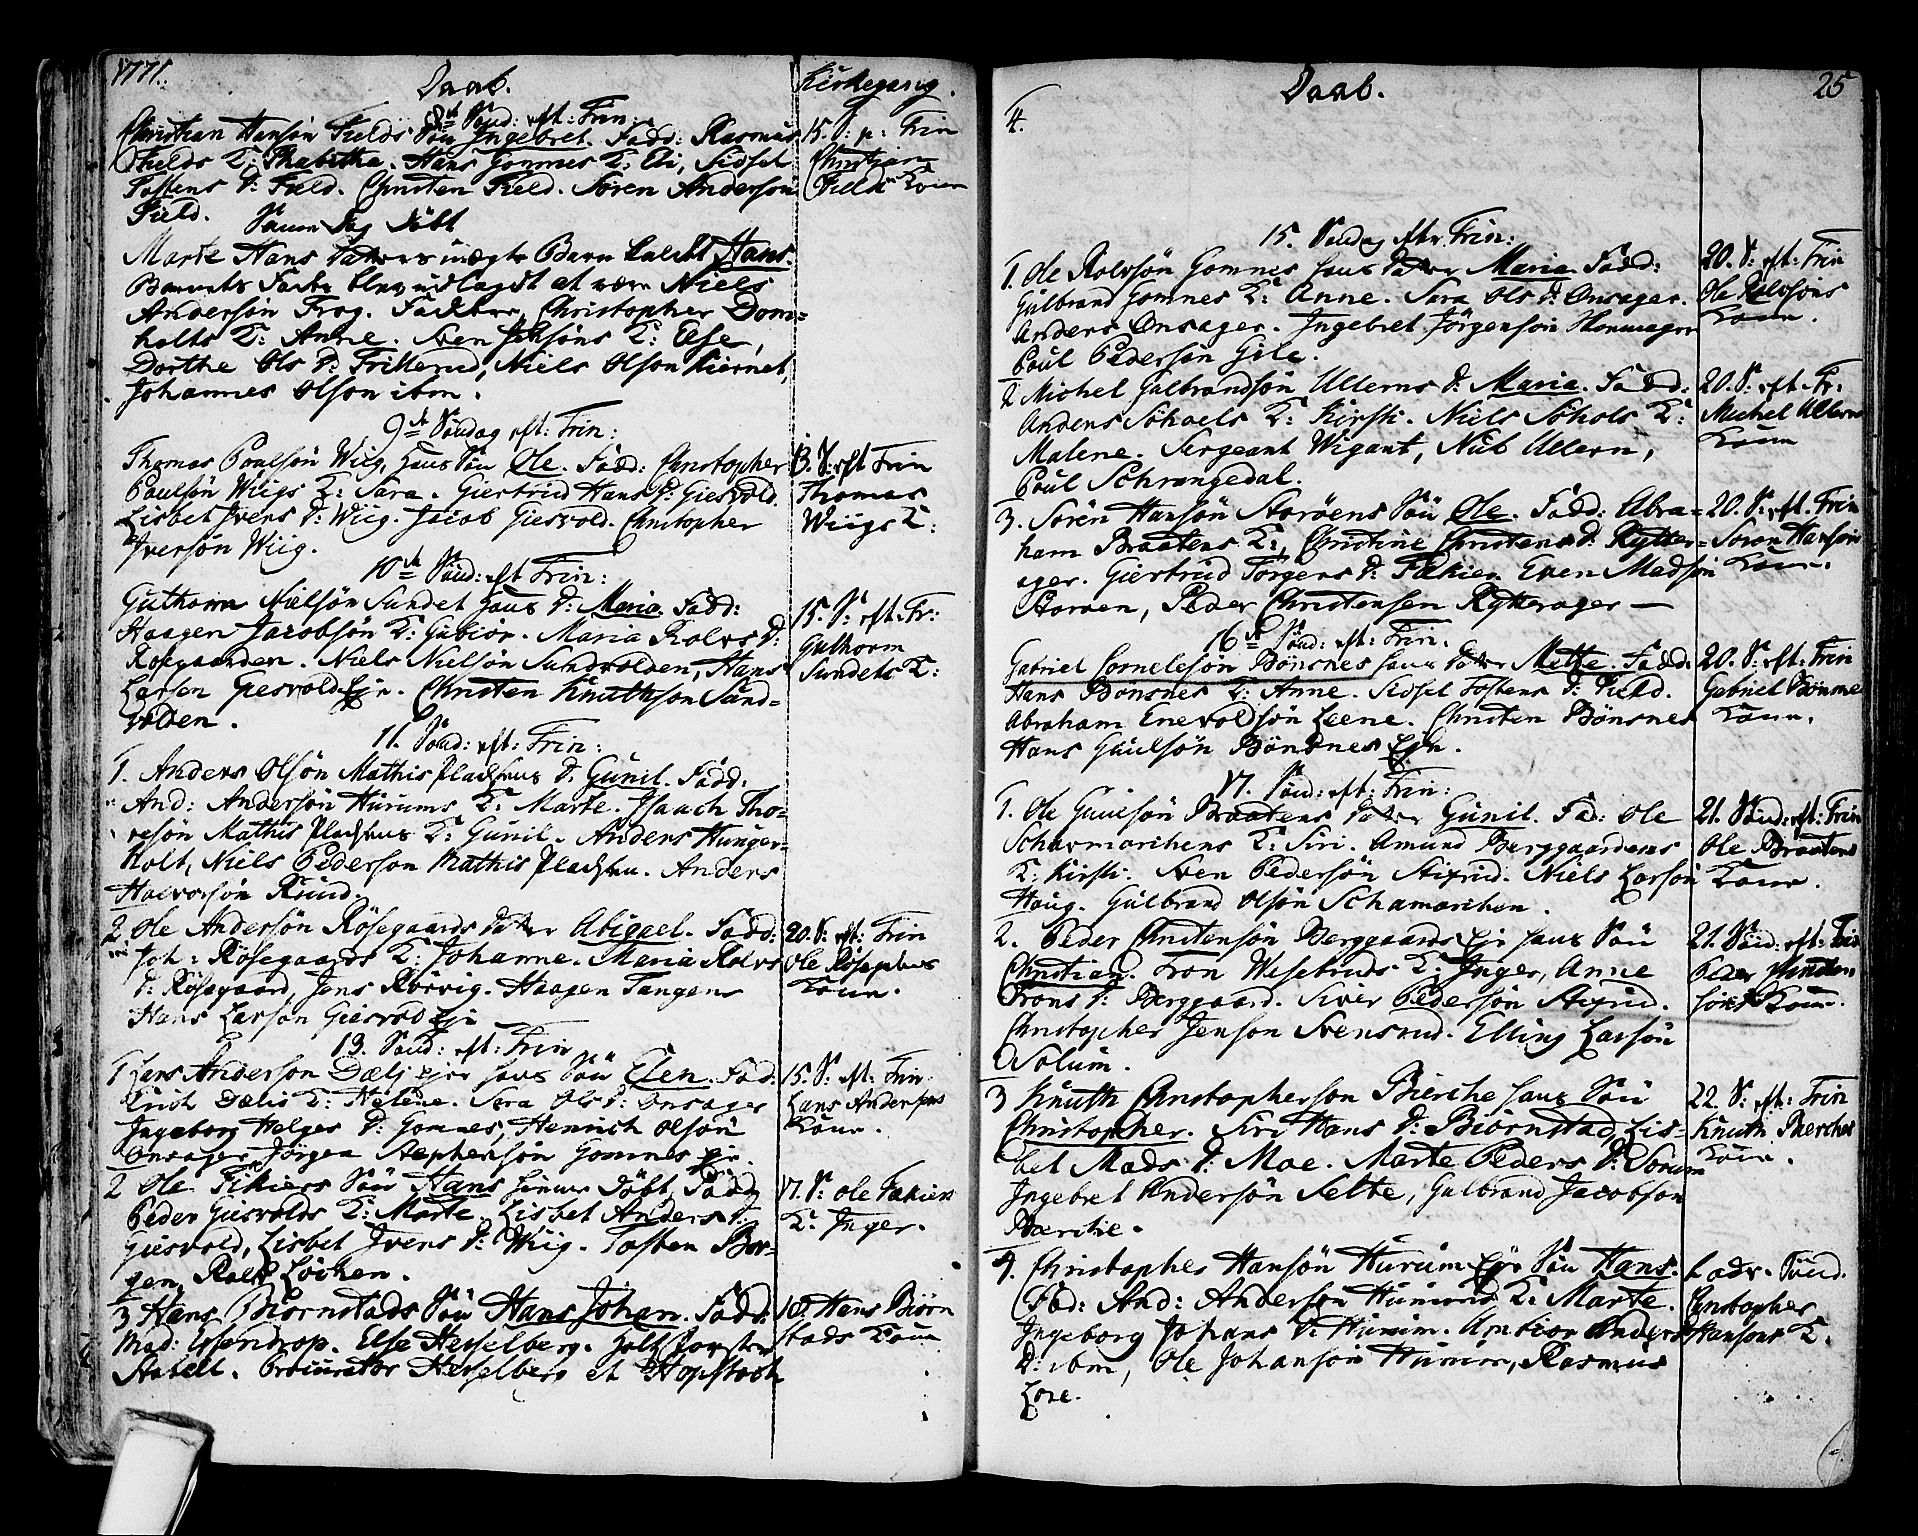 1771.
Daab.
Kirkegang.
8de Sønd: eft: Trin:
Christian Hansøn Fields Søn Ingebret. Fadd: Rasmus
Fields K: Thabitha. Hans Gomnes K: Eli, Sidsel
Tostens D: Field. Christen Field. Søren Anderson
Field.
15. S: p: Trin
Christian
Fields Kone
Samme Dag Døbt
Marte Hans Datters uægte Barn kaldet Hans.
Barnets Fader blev udlagdt at være Niels
Andersøn Frog. Faddere, Christopher Dom=
holts K: Anne. Sven K: Else,
Dorthe Ols D: Frillerud, Niels Olson Kiernet,
Johannes Olson ibm.
9de Søndag eft: Trin:
Thomas Poulsøn Wiig, hans Søn Ole. Fadd: Christopher
Paulsøn Wiigs K: Sara. Giertrud Hans D: Giesvold.
Lisbet Ivers D: Wiig. Jacob Giesvold. Christopher
Iversøn Wiig.
13. S: eft Trin
Thomas
Wiigs K:
10de Sønd: eft Trin:
Guthorm Nielsøn Sundet hans D: Maria. Fadd:
Haagen Jacobsøn K: Gubiør. Maria Rolvs D:
Røsegaarden. Niels Nielsøn Sundvolden, Hans
Larson Giesvold Eje. Christen Knuthson Sund=
volden.
15. S: eft: Tr:
Guthorm
Sundets K:
11. Sønd: eft: Trin:
1. Anders Olsøn Mathis Pladsens D: Gunil. Fadd:
And: Andersøn Hurums K: Marte. Isaach Tho=
resøn Mathis Pladsens K: Gunil. Anders Hunger=
holt, Niels Pederson Mathis Pladsen. Anders
Halvorsøn Rud.
2. Ole Andersøn Røsegaards Datter Abigael. Fadd:
Joh: Røsegaards K: Johanne. Maria Rolvs
D: Røsegaard, Jens Rørvig. Haagen Tangens
Hans Larson Giesvold Eje
20. S: eft: Trin
Ole
Kone.
13. Sønd: eft: Trin
1 Lars Anderson Dælj Ejer hans Søn Elen. Fad:
Erich Dælis K: Helene. Sara Ols D: Onsager
Ingeborg Helges D: Gomnes, Henrich Olsøn
Onsager Jørgen Stephensøn Gomnes Eje.
15. S: eft: Trin:
Lars Andersøns
Kone.
2 Ole Fikiers Søn Hans hiemme Døbt, Fadd
Peder Giesvolds K: Marte. Lisbet Anders D:
Giesvold, Lisbet Ivers D: Wiig. Tosten Bor=
gen, Rolf Løchen.
17. S: Ole Fakiers
K: Inger.
3 Hans Biørnstads Søn Hans Johan. Fadd:
Mad: Ustendrop. Else Hesselberg.
Stabell. Procurator Hesselberg et Hopstoch
18. Hans Biørn
stads Kone
Daab.
25
4.
15. Søndag eftr. Trin:
1. Ole Rolvsøn Gomnes hans Datter Maria. Fadd:
Gulbrand Gomnes K: Anne. Sara Ols D: Onsager.
Anders Onsager. Ingebret Jørgensøn Honnager
Poul Pedersøn Gile.
20. S: eft: Trin
Ole Rolvsøns
Kone.
2 Michel Gulbrandsøn Ullerns D: Maria. Fadd:
Anders Schoels K: Kirsti. Niels Schols K:
Malene. Sergeant Wigant, Nub Ullern,
Poul Schrangedal.
20. S: eft: Tr:
Michel Ullern
Kone
3. Søren Hansøn Storøens Søn Ole. Fadd: Abra=
ham Braatens K:, Christine Christens D: Rytter=
ager. Giertrud Tørgers D: Fakier. Even Madsøn
Storøen, Peder Christensen Rytterager
20. S: eft: Trin
Søren Hansøns
Kone.
16de Sønd: eft: Trin:
Gabriel Cornelesøn Bønsnes hans Datter Mette. Fadd:
Hans Bønsnes K: Anne. Sidsel Tostens D: Field.
Abraham Enevoldsøn Leene. Christen Bønsnes
Hans Gulsøn Bønsnes Eje.
20. S: eft: Trin
Gabriel Bønsnes
Kone.
17. Sønd: eft: Trin:
1. Ole Gulsøn Braatens Datter Gunil. Fad: Ole
Scharmarchens K: Siri. Amund Berggaardens
K: Kirsti. Sven Pedersøn Stixrud. Niels Larsøn
Houg. Gulbrand Olsøn Schamarchen.
21. Sønd: eft: Trin
Ole Braatens
Kone.
2. Peder Christensøn Berggaards Eje hans Søn
Christian. Tron Wesetruds K: Inger, Anne
Trons D: Berggaard. Siver Pedersøn Stixrud.
Christopher Jenson Svensrud. Elling Larsøn
Solum.
21. Sønd: eft: Trin
Peder Christen
søns Kone.
3 Knuth Christopherson Bierche hans Søn
Christopher. Siri Hans D: Biørnstad, Lis=
bet Mads D: Moe. Marte Peders D: Sonum
Ingebret Andersøn Selte, Gulbrand Jacobson
Bierche.
22. S: eft: Trin
Knuth Bierches
Kone.
4. Christopher Hansøn Hurum Eje Søn Hans.
Fad: And: Anderson Hurums K: Marte.
Ingeborg Johans D: Hurum. Anders
D: ibm, Ole Johansøn Hurum, Rasmus
Lore.
Sønd.
Christopher
Hansøns K.